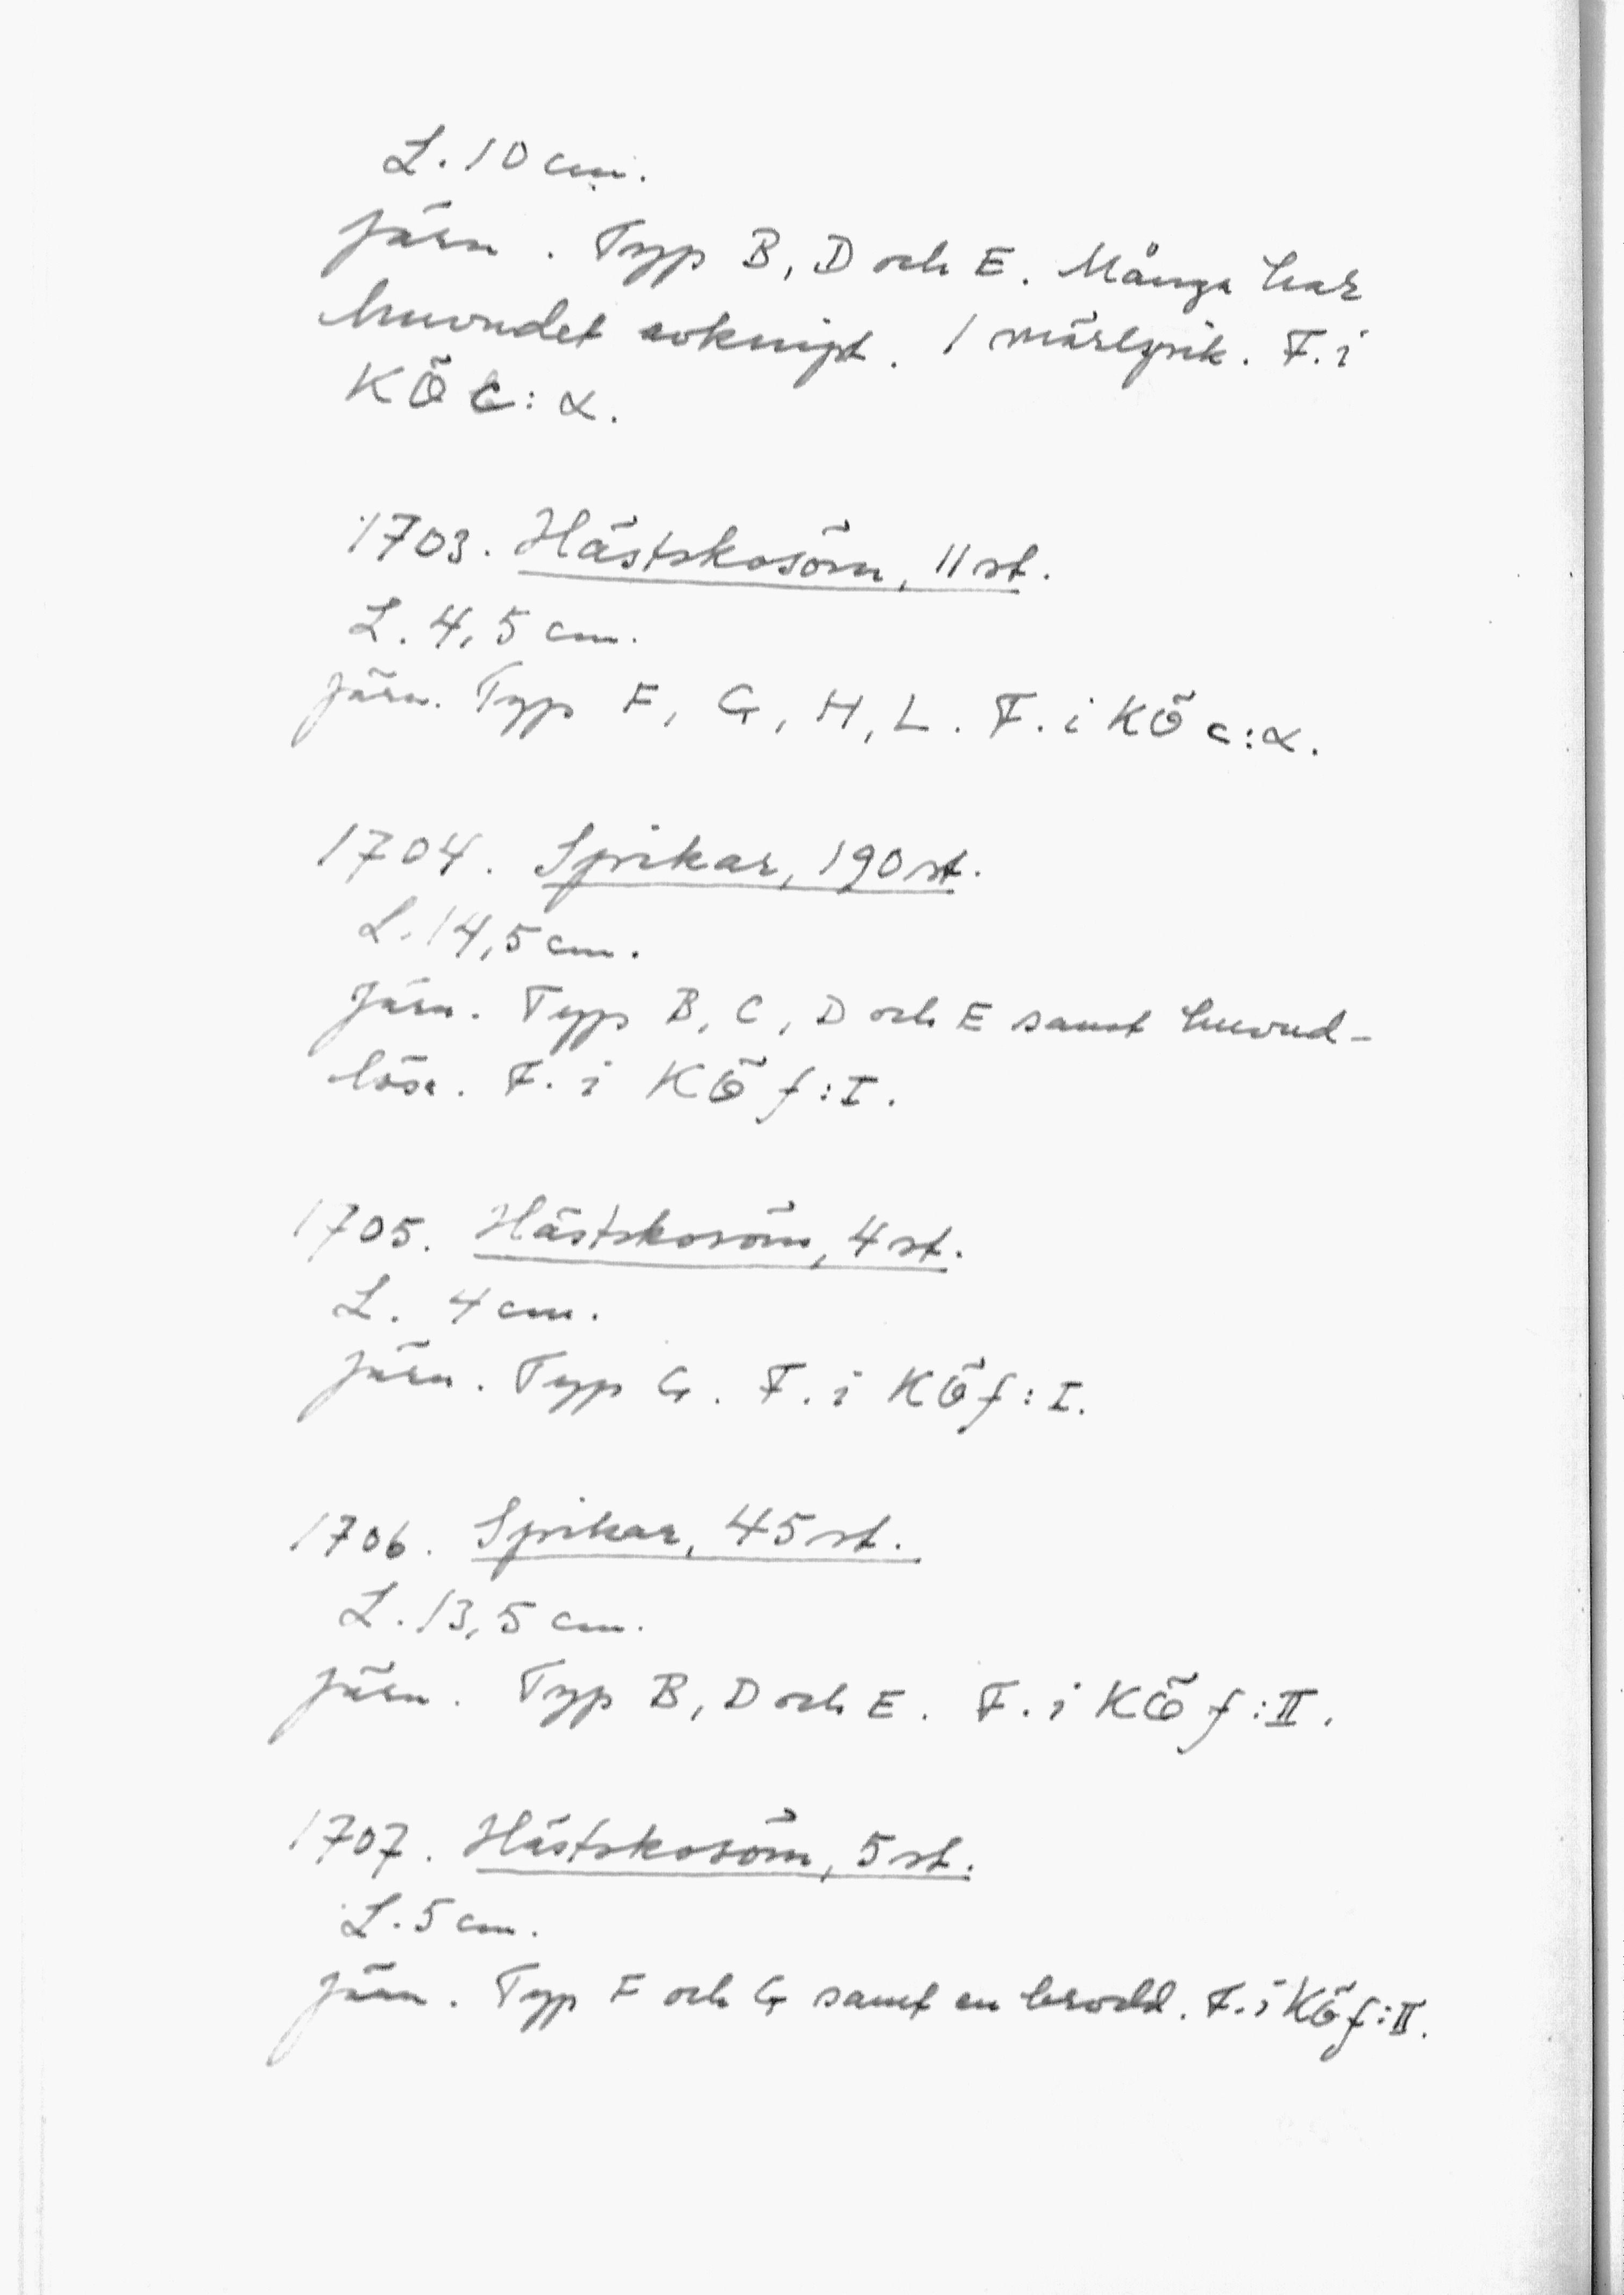 L. 10 cm.
Järn. Typ B, D och E. Många har
huvudet avknipt. 1 märlspik. F. i
KÖ c:α.
1703. Hästskosöm, 11 st.
L. 4,5 cm.
Järn. Typ F, G, H, L. F. i KÖ c:α.
1704. Spikar, 190 st.
L. 14,5 cm.
Järn. Typ B, C, D och E samt huvud-
lösa. F. i KÖ f:I.
1705. Hästskosöm, 4 st.
L. 4 cm.
Järn. Typ G. F. i KÖ f:I.
1706. Spikar, 45 st.
L. 13,5 cm.
Järn. Typ B, D och E. F. i KÖ f:II.
1707. Hästskosöm, 5 st.
L. 5 cm.
Järn. Typ F och G samt en brodd. F. i KÖ f:II.